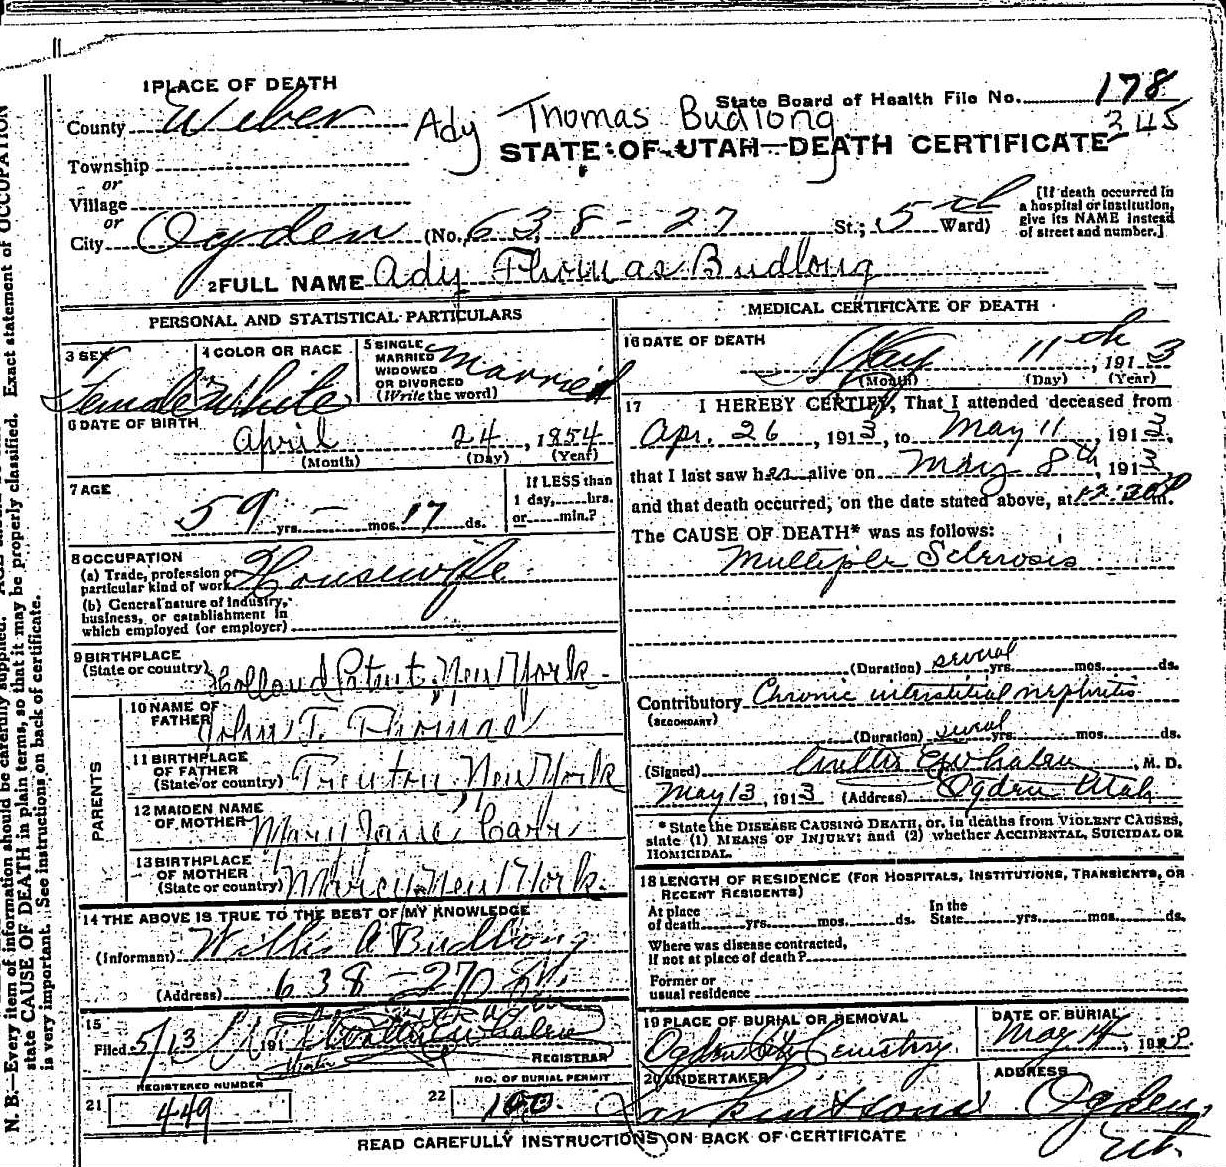 1 PLACE OF DEATH
State Board of Health File No. 178
County Weber
Ady Thomas Budlong
345
STATE OF UTAH—DEATH CERTIFICATE
Township
or
Village
or
City Ogden (No. 638-27 St.; 5th Ward)
[If death occurred in
a hospital or institution,
give its NAME instead
of street and number.]
2 FULL NAME Ady Thomas Budlong
PERSONAL AND STATISTICAL PARTICULARS
3 SEX
Female
4 COLOR OR RACE
White
5 SINGLE
MARRIED
WIDOWED
OR DIVORCED
(Write the word)
Married
6 DATE OF BIRTH
April 24, 1854
(Month) (Day) (Year)
7 AGE
59 yrs. — mos. 17 ds.
If LESS than
1 day, hrs.
or min.?
8 OCCUPATION
(a) Trade, profession or
particular kind of work Housewife
(b) General nature of industry,
business, or establishment in
which employed (or employer)
9 BIRTHPLACE
(State or country) Holland Patent, New York
PARENTS
10 NAME OF
FATHER John T. Thomas
11 BIRTHPLACE
OF FATHER
(State or country) Trenton, New York
12 MAIDEN NAME
OF MOTHER Mary Jane Carr
13 BIRTHPLACE
OF MOTHER
(State or country) Marcy, New York.
14 THE ABOVE IS TRUE TO THE BEST OF MY KNOWLEDGE
(Informant) Willis A Budlong
(Address) 638-27 St.
15
Filed 5/13 191
REGISTRAR
REGISTERED NUMBER
21 449
NO. OF BURIAL PERMIT
22 160
MEDICAL CERTIFICATE OF DEATH
16 DATE OF DEATH
May 11th, 1913
(Month) (Day) (Year)
17 I HEREBY CERTIFY, That I attended deceased from
Apr. 26, 1913, to May 11, 1913,
that I last saw her alive on May 8th, 1913
and that death occurred, on the date stated above, at 12:30 P m.
The CAUSE OF DEATH* was as follows:
Multiple Sclerosis
(Duration) several yrs. mos. ds.
Contributory Chronic interstitial nephritis
(SECONDARY)
(Duration) several yrs. mos. ds.
(Signed) Whalen, M. D.
May 13, 1913 (Address) Ogden Utah
* State the DISEASE CAUSING DEATH, or, in deaths from VIOLENT CAUSES,
state (1) MEANS OF INJURY; and (2) whether ACCIDENTAL, SUICIDAL OR
HOMICIDAL.
18 LENGTH OF RESIDENCE (FOR HOSPITALS, INSTITUTIONS, TRANSIENTS, OR
RECENT RESIDENTS)
At place
of death yrs. mos. ds.
In the
State yrs. mos. ds.
Where was disease contracted,
if not at place of death?
Former or
usual residence
19 PLACE OF BURIAL OR REMOVAL
Ogden City Cemetery.
DATE OF BURIAL
May 14, 1913.
20 UNDERTAKER
Larkin & Sons
ADDRESS
Ogden,
Ut.
READ CAREFULLY INSTRUCTIONS ON BACK OF CERTIFICATE
N. B.—Every item of information should be carefully supplied. Exact statement of OCCUPATION
state CAUSE OF DEATH in plain terms, so that it may be properly classified.
is very important. See instructions on back of certificate.